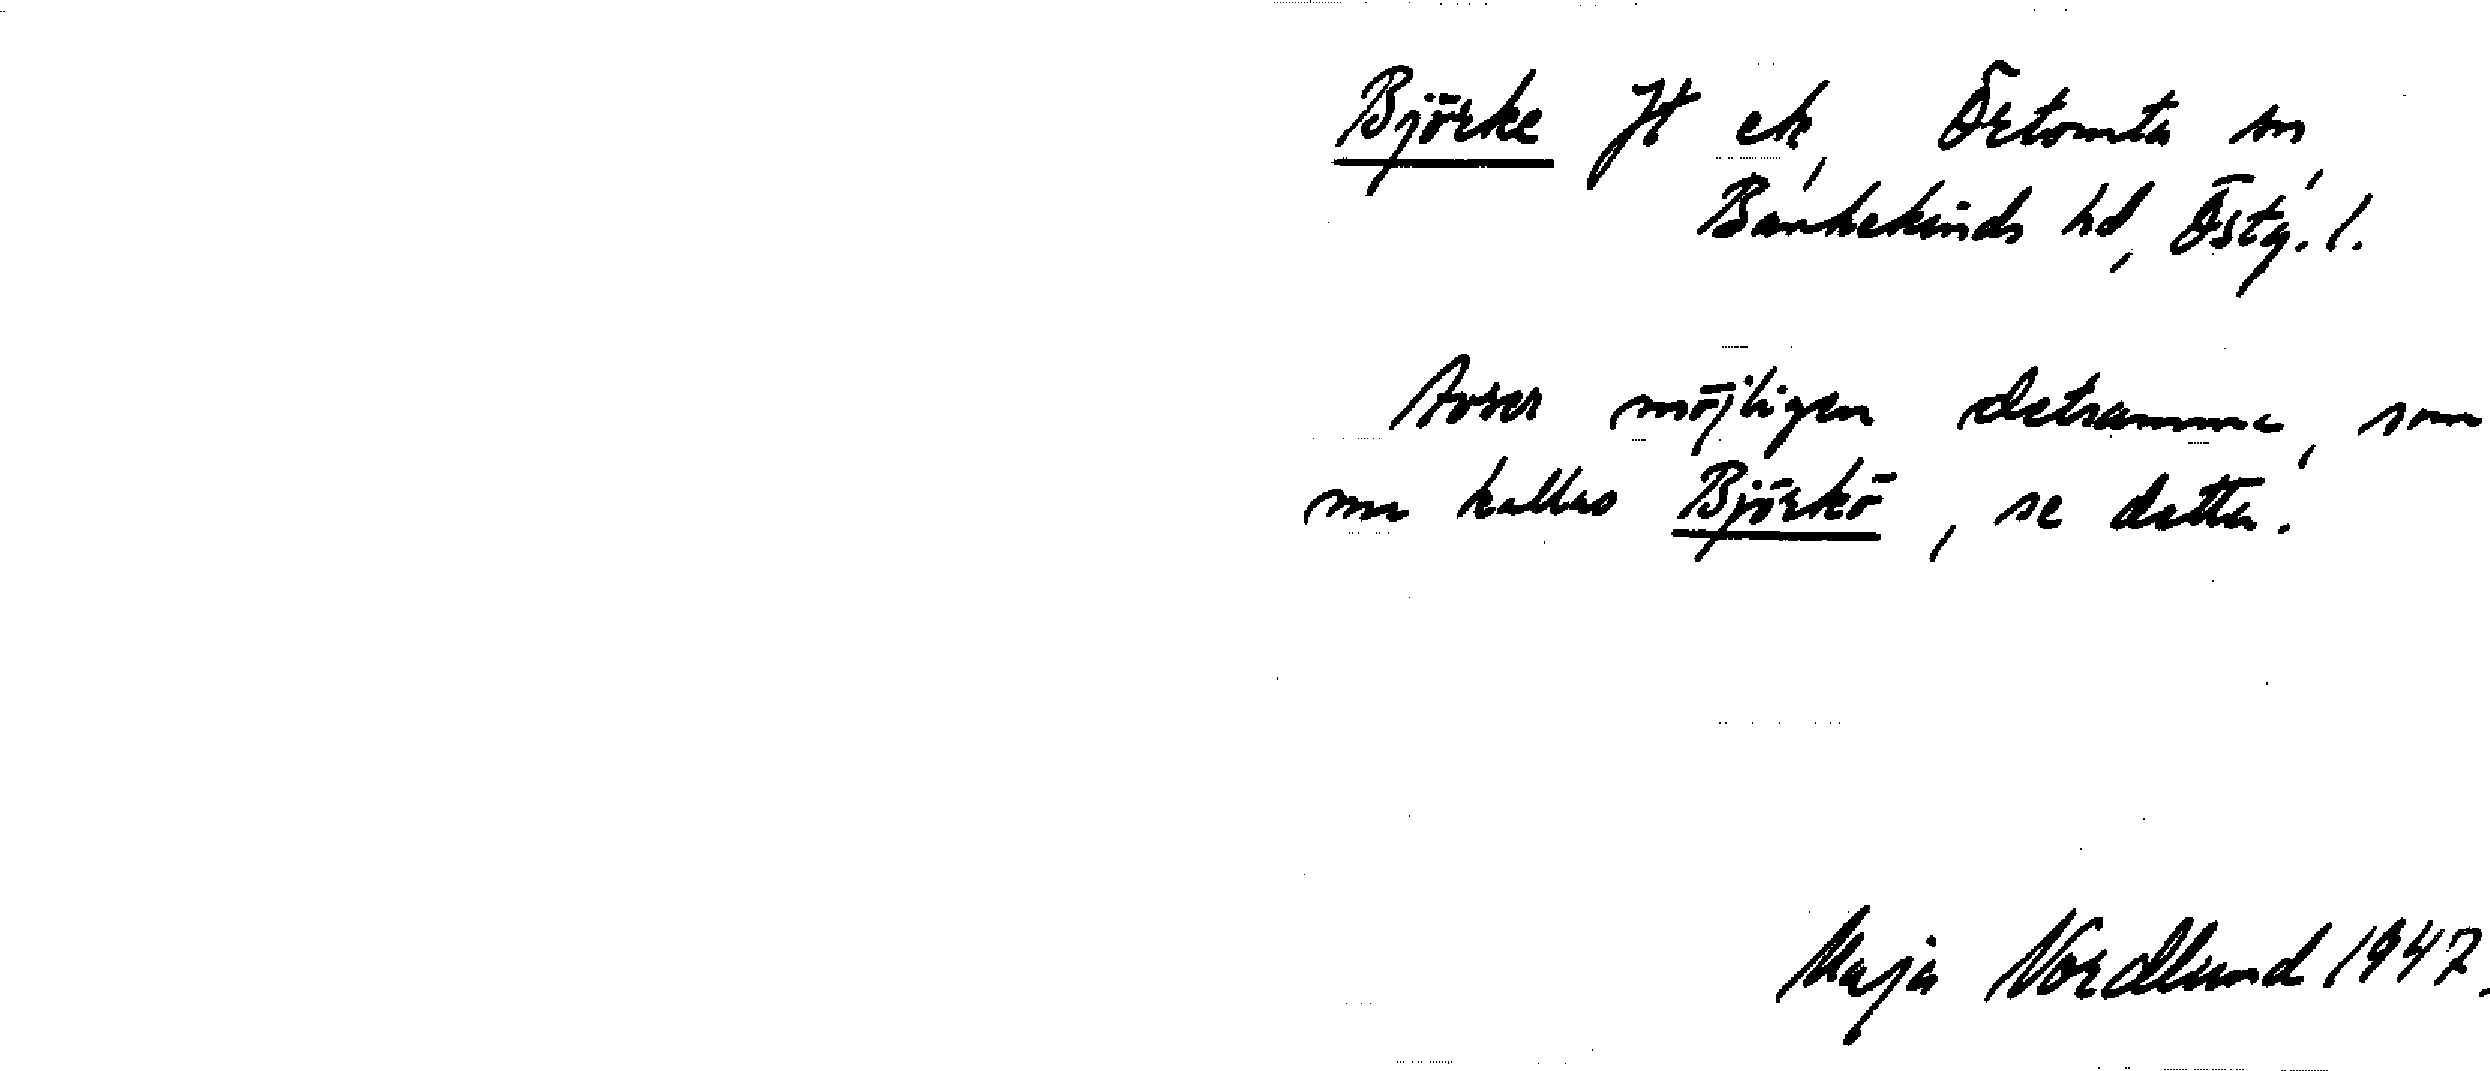 Björke Jt ek, Örtomta sn,
Bankekinds hd, Östg. l.
Avser möjligen detsamma, som
nu kallas Björkö, se detta.
Maja Nordlund 1947.